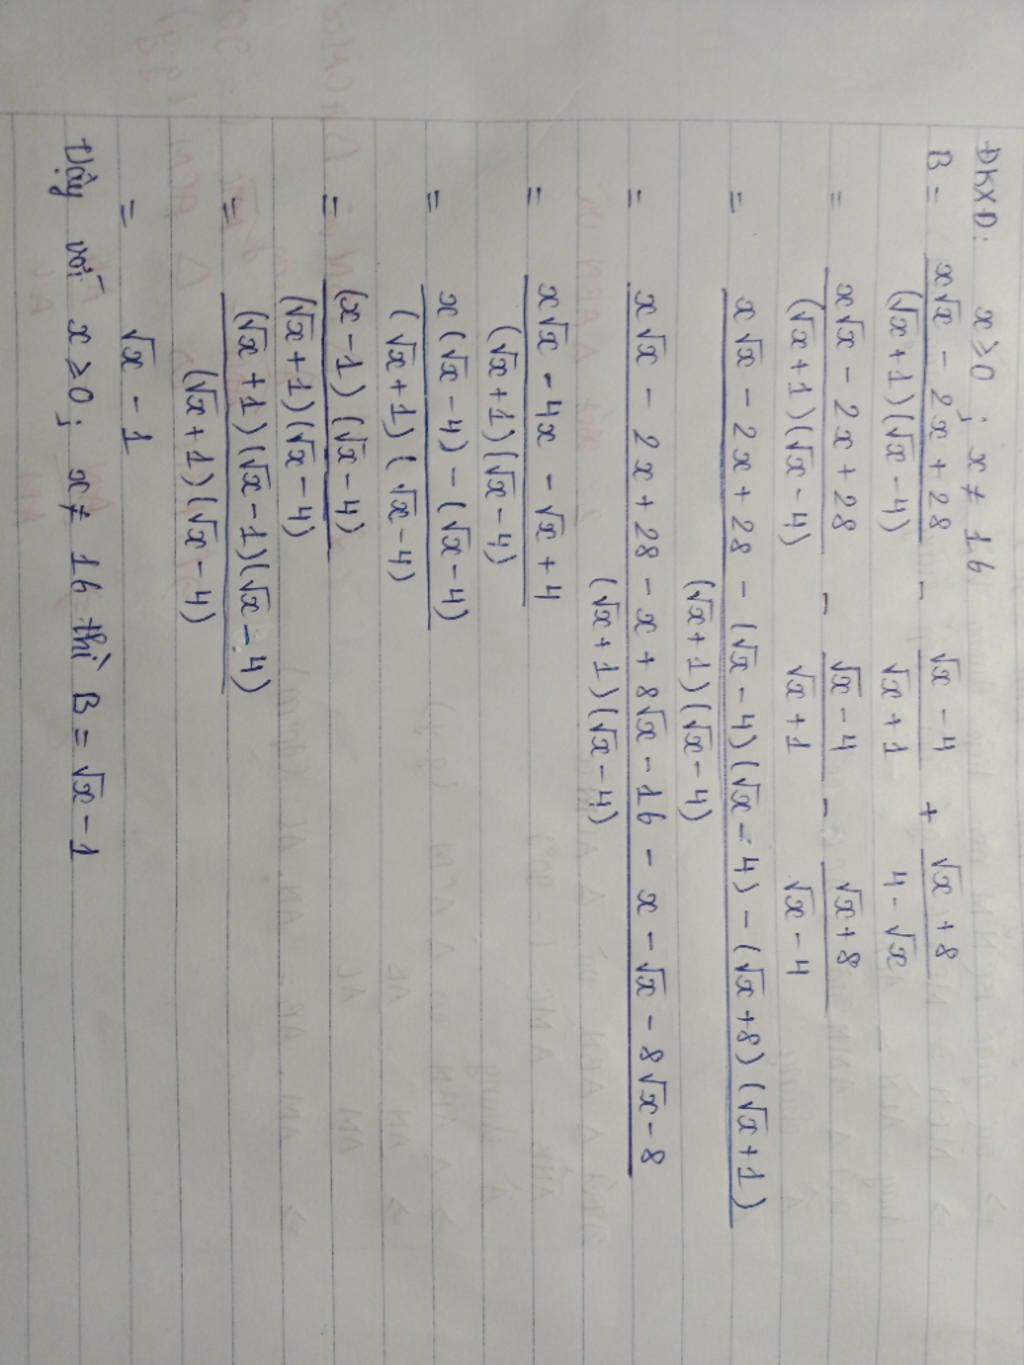 ĐKXĐ: x ≥ 0 ; x ≠ 16
B = (x√x - 2x + 28)/((√x + 1)(√x - 4)) - (√x - 4)/(√x + 1) + (√x + 8)/(4 - √x)
= (x√x - 2x + 28)/((√x + 1)(√x - 4)) - (√x - 4)/(√x + 1) - (√x + 8)/(√x - 4)
= (x√x - 2x + 28 - (√x - 4)(√x - 4) - (√x + 8)(√x + 1))/((√x + 1)(√x - 4))
= (x√x - 2x + 28 - x + 8√x - 16 - x - √x - 8√x - 8)/((√x + 1)(√x - 4))
= (x√x - 4x - √x + 4)/((√x + 1)(√x - 4))
= (x(√x - 4) - (√x - 4))/((√x + 1)(√x - 4))
= ((x - 1)(√x - 4))/((√x + 1)(√x - 4))
= ((√x + 1)(√x - 1)(√x - 4))/((√x + 1)(√x - 4))
= √x - 1
Vậy với x ≥ 0 ; x ≠ 16 thì B = √x - 1